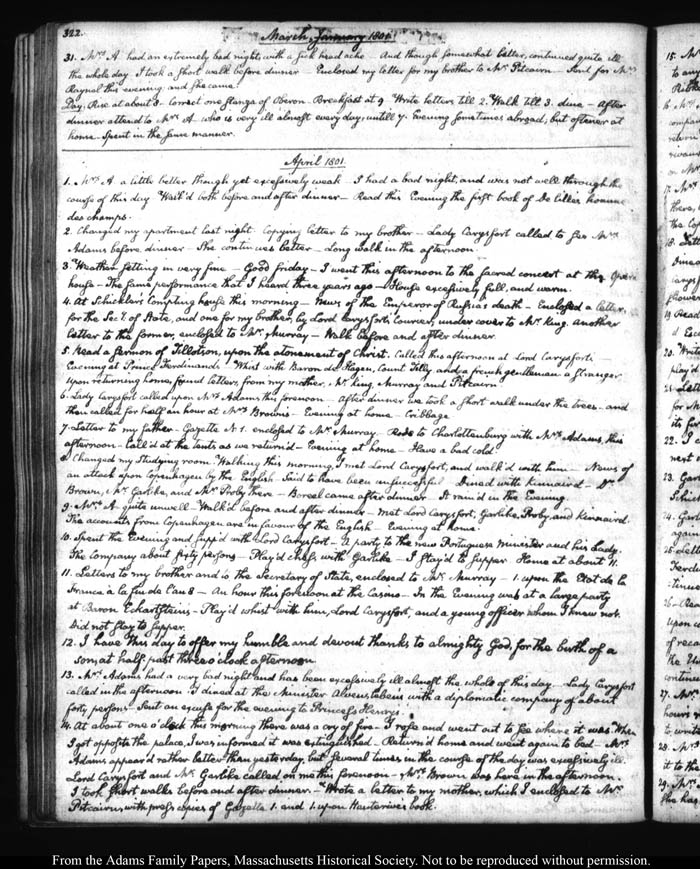 322.
March, January 1801.
31. Mrs. A had an extremely bad night, with a sick head ache And though somewhat better, continued quite ill
the whole day I took a short walk before dinner — Enclosed my letter for my brother to Mr. Pitcairn Sent for Mrs
Raynal this evening and she came.
Day. Rise at about 8. Correct one stanza of Oberon. Breakfast at 9 Write letters till 2. Walk till 3. dine — After
dinner attend to Mrs. A who is very ill almost every day, untill 7. Evening sometimes abroad, but oftener at
home — Spent in the same manner.
April 1801.
1. Mrs. A a little better though yet excessively weak — I had a bad night, and was not well through the
course of this day Walk'd both before and after dinner — Read this Evening the first book of De Lilles homme
des champs.
2. Changed my apartment last night Copying letter to my brother — Lady Carysfort called to see Mrs
Adams before dinner — She continues better — Long walk in the afternoon.
3. Weather setting in very fine — Good friday — I went this afternoon to the sacred concert at the Opera
house — The same performance that I heard three years ago — House excessively full, and warm.
4. At Schickler's Compting house this morning — News of the Emperor of Russia's death — Enclosed a letter,
for the Secy. of State, and one for my brother, by Lord Carysfort's Courier, under cover to Mr. King. another
letter to the former, enclosed to Mr. Murray — Walk before and after dinner
5. Read a Sermon of Tillotson, upon the atonement of Christ. Called this afternoon at Lord Carysfort's —
Evening at Prince Ferdinands Whist with Baron de Hagen, Count Tilly and a french gentleman a stranger
Upon returning home, found letters, from my mother, Mr. King, Murray and Pitcairn
6. Lady Carysfort called upon Mrs. Adams this forenoon — After dinner we took a short walk under the trees — and
then called for half an hour at Mrs. Brown's — Evening at home — Cribbage
7. Letter to my father — Gazette N. 1. enclosed to Mr. Murray — Rode to Charlottenburg with Mrs. Adams, this
afternoon — Call'd at the tents as we return'd — Evening at home — Have a bad cold
8. Changed my studying room Walking this morning, I met Lord Carysfort, and walk'd with him — News of
an attack upon Copenhagen by the English Said to have been unsuccessful — Dined with Kinnaird — Dr
Brown, Mr. Garlike, and Mr. Proby there — Boreel came after dinner — It rain'd in the Evening.
9. Mrs. A. quite unwell — Walk'd before and after dinner — met Lord Carysfort, Garlike, Proby, and Kinnaird
The accounts from Copenhagen are in favour of the English — Evening at home.
10. Spent the Evening and supp'd with Lord Carysfort — A party to the new Portuguese minister and his Lady.
The company about forty persons — Play'd chess with Garlike — I stay'd to supper Home at about 11.
11. Letters to my brother and to the Secretary of State, enclosed to Mr. Murray — 1. upon the Etat de la
France à la fin de l'an 8 — An hour this forenoon at the Casino — In the Evening was at a large party
at Baron Eckardstein's — Play'd whist with him, Lord Carysfort, and a young officer whom I knew not.
Did not stay to supper.
12. I have this day to offer my humble and devout thanks to almighty God, for the birth of a
son, at half past three o'clock afternoon
13. Mrs. Adams had a very bad night and has been excessively ill almost the whole of this day — Lady Carysfort
called in the afternoon I dined at the Minister Alvensleben's with a diplomatic company of about
forty persons — Sent an excuse for the evening to Princess Henry's
14. At about one o'clock this morning there was a cry of fire — I rose and went out to see where it was. When
I got opposite the palace, I was informed it was extinguished — Return'd home and went again to bed — Mrs
Adams appear'd rather better than yesterday, but several times in the course of the day was excessively ill.
Lord Carysfort and Mr. Garlike called on me this forenoon — Mrs. Brown was here in the afternoon.
I took short walks before and after dinner. — Wrote a letter to my mother, which I enclosed to Mr.
Pitcairn, with press copies of Gazette 1. and 1. upon Hauterive's book.
From the Adams Family Papers, Massachusetts Historical Society. Not to be reproduced without permission.